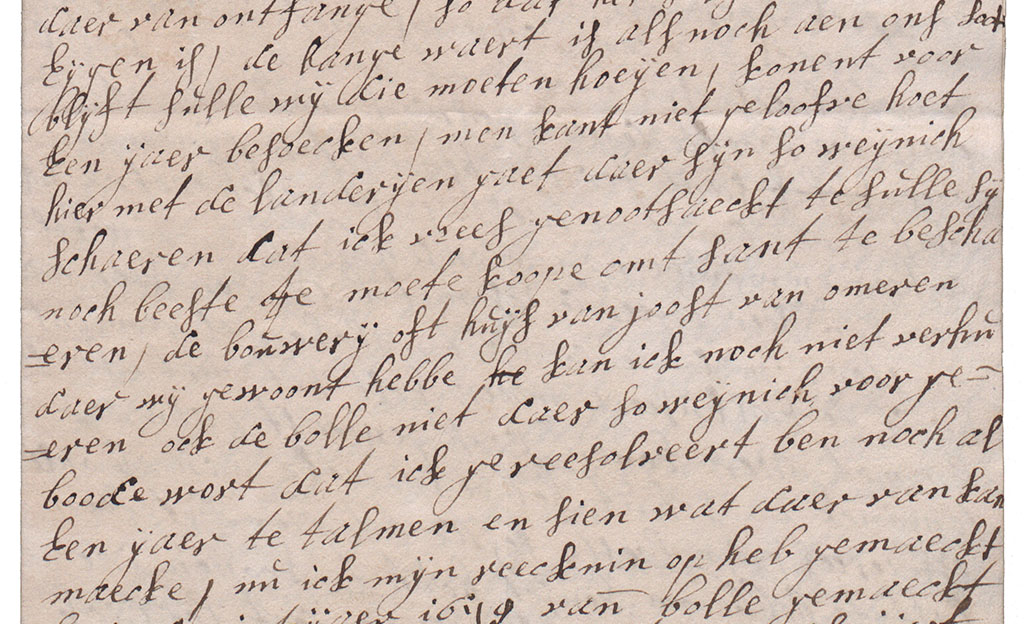 daer van ontfange, so dat
kijgen is, de lange waert is als noch aen ons
blijft sulle wy die moeten hoeijen, konent voor
Een ijaer besoecken, men kant niet geloofve hoet
hier met de landerijen gaet daer sijn so weijnich
schaeren dat ick vrees genootsaeckt te sulle sij
noch beeste te moete koope omt sant te bescha
=eren, de bouwerij oft huijs van joost van omeren
daer wij gewoont hebbe kan ick noch niet verhu
=eren ock de bolle niet daer so weijnich voor ge=
boode wort dat ick gereesolveert ben noch al
Een ijaer te talmen en sien wat daer van kan
maecke, nu ick mijn reecknin op heb gemaeckt
ijaer van bolle gemaeckt